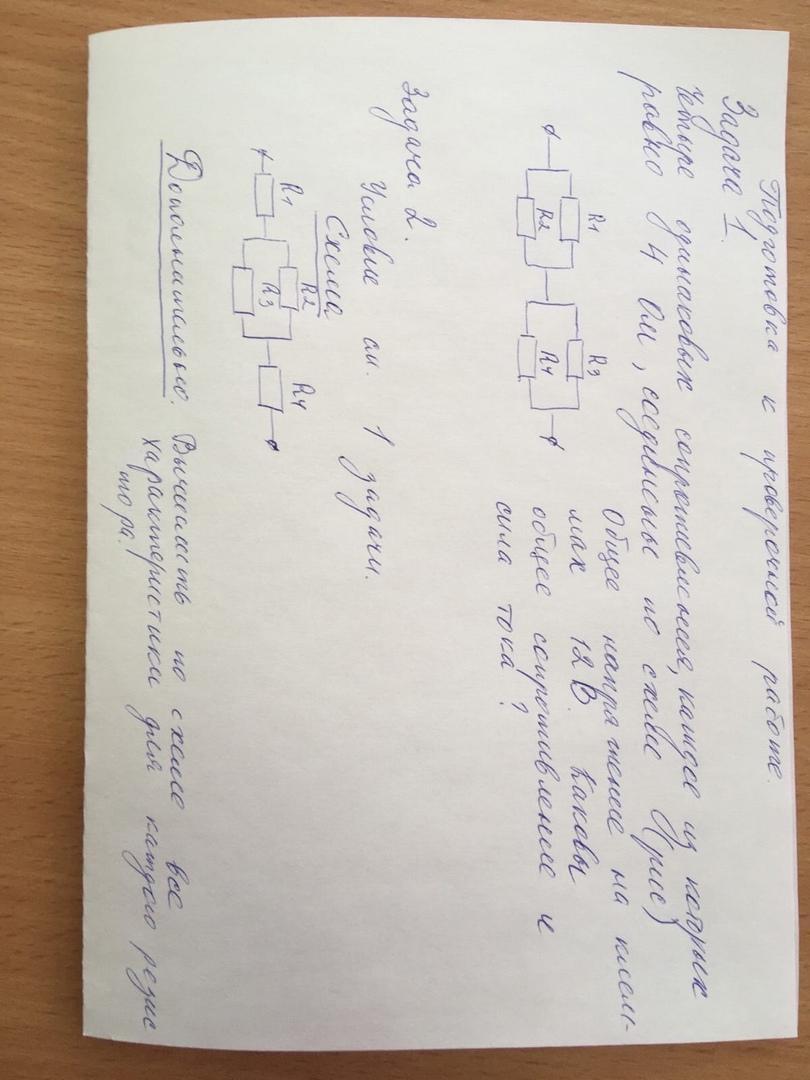 Подготовка к проверочной работе.
Задача 1.
Четыре одинаковых сопротивления, каждое из которых
равно 4 Ом, соединены по схеме (рис)
R1
R2
R3
R4
Общее напряжение на клем-
мах 12 В. Каковы
общее сопротивление и
сила тока?
Задача 2.
Условие см. 1 задачи.
Схема
R1
R2
R3
R4
Дополнительно. Вычислить по схеме все
характеристики для каждого резис
тора.